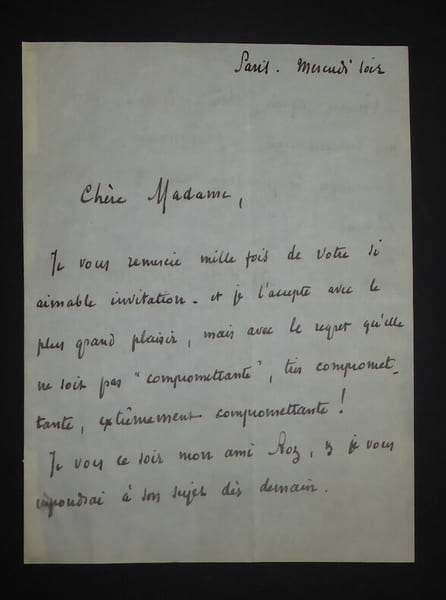 Paris. Mercredi soir
Chère Madame,
Je vous remercie mille fois de votre si
aimable invitation - et je l'accepte avec le
plus grand plaisir, mais avec le regret qu'elle
ne soit pas "compromettante", très compromet-
tante, extrêmement compromettante !
Je vois ce soir mon ami Roz, & je vous
répondrai à son sujet dès demain.